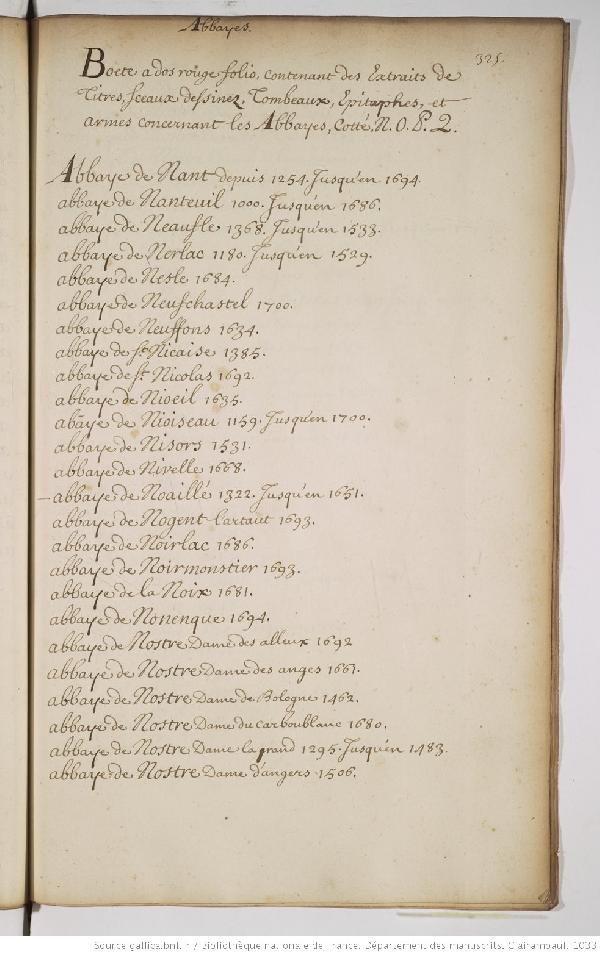 Abbayes.
325.
Boete a dos rouge folio, contenant des Extraits de
Titres, sceaux dessinez, Tombeaux, Epitaphes, et
armes concernant les Abbayes, Cotté, N. O. P. Q.
Abbaye de Nant depuis 1254. Jusqu'en 1694.
abbaye de Nanteuil 1000. Jusqu'en 1686.
abbaye de Neaufle 1368. Jusqu'en 1533.
abbaye de Nerlac 1180. Jusqu'en 1529.
abbaye de Nesle 1684.
abbaye de Neufchastel 1700.
abbaye de Neuffons 1634.
abbaye de St. Nicaise 1385.
abbaye de St. Nicolas 1692.
abbaye de Nioeil 1635.
abaye de Nioiseau 1159. Jusqu'en 1700.
abbaye de Nisors 1531.
abbaye de Nivelle 1668.
abbaye de Noaillé 1322. Jusqu'en 1651.
abbaye de Nogent l'artaut 1693.
abbaye de Noirlac 1686.
abbaye de Noirmonstier 1693.
abbaye de la Noix 1681.
abbaye de Nonenque 1694.
abbaye de Nostre Dame des alleux 1692
abbaye de Nostre Dame des anges 1661.
abbaye de Nostre Dame de Bologne 1462.
abbaye de Nostre Dame du carboublanc 1680.
abbaye de Nostre Dame la grand 1295. Jusqu'en 1483.
abbaye de Nostre Dame d'angers 1506.
Source gallica.bnf.fr / Bibliothèque nationale de France. Département des manuscrits. Clairambault 1033